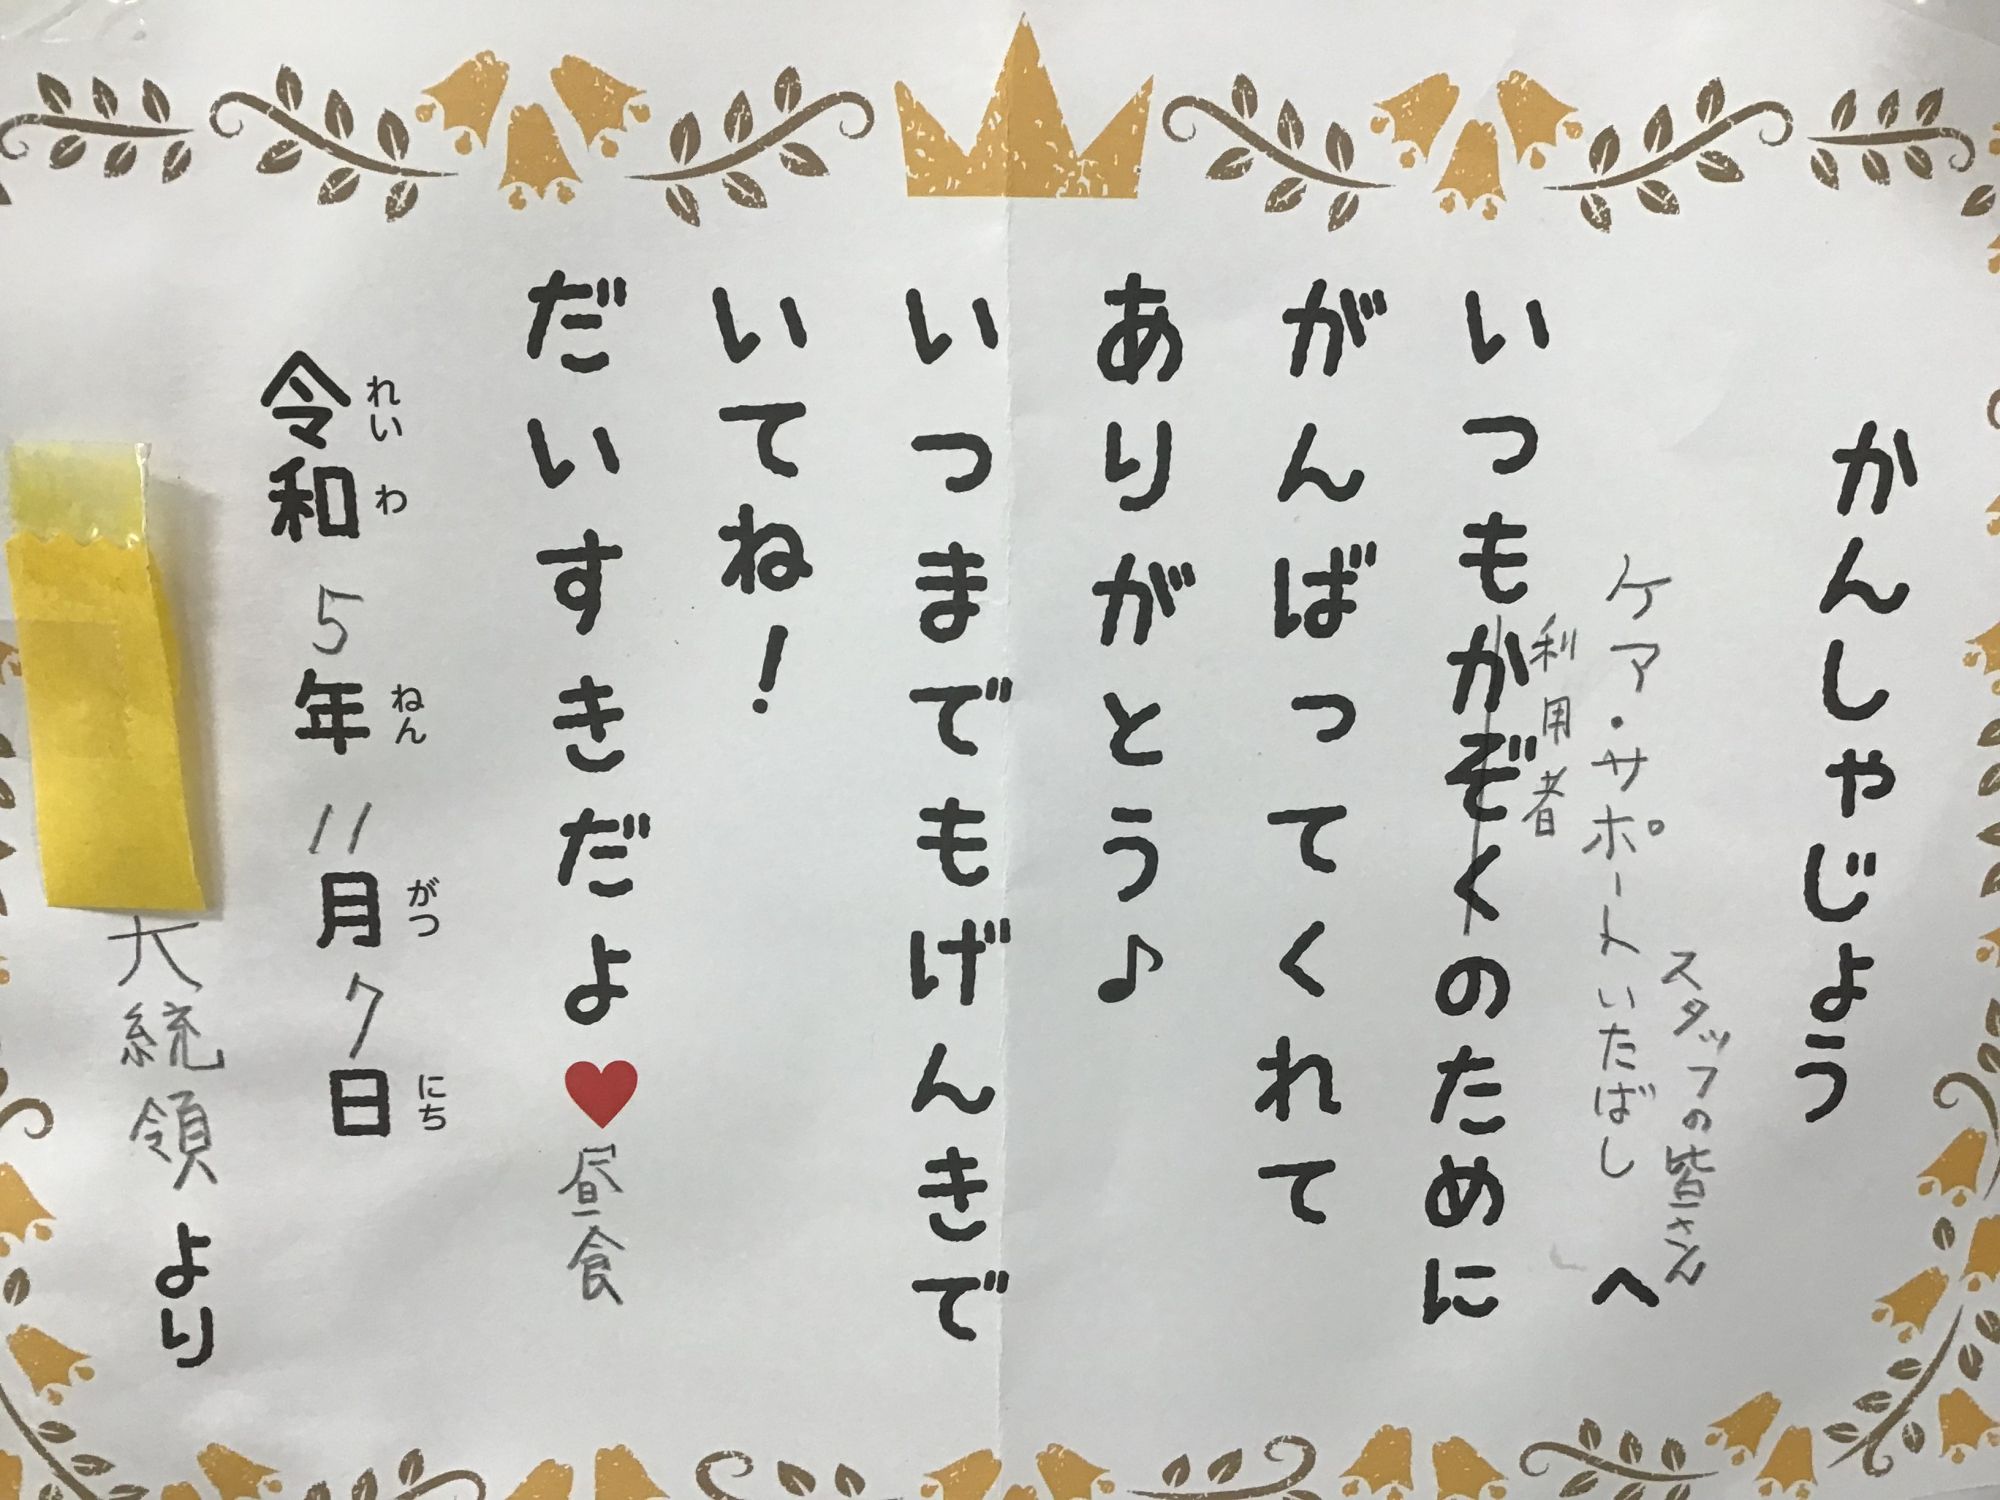 かんしゃじょう
スタッフの皆さん
ケア・サポートいたばし へ
利用者
いつもかぞくのために
がんばってくれて
ありがとう♪
いつまでもげんきで
いてね!
だいすきだよ♥昼食
れいわ ねん がつ にち
令和5年11月7日
大統領より